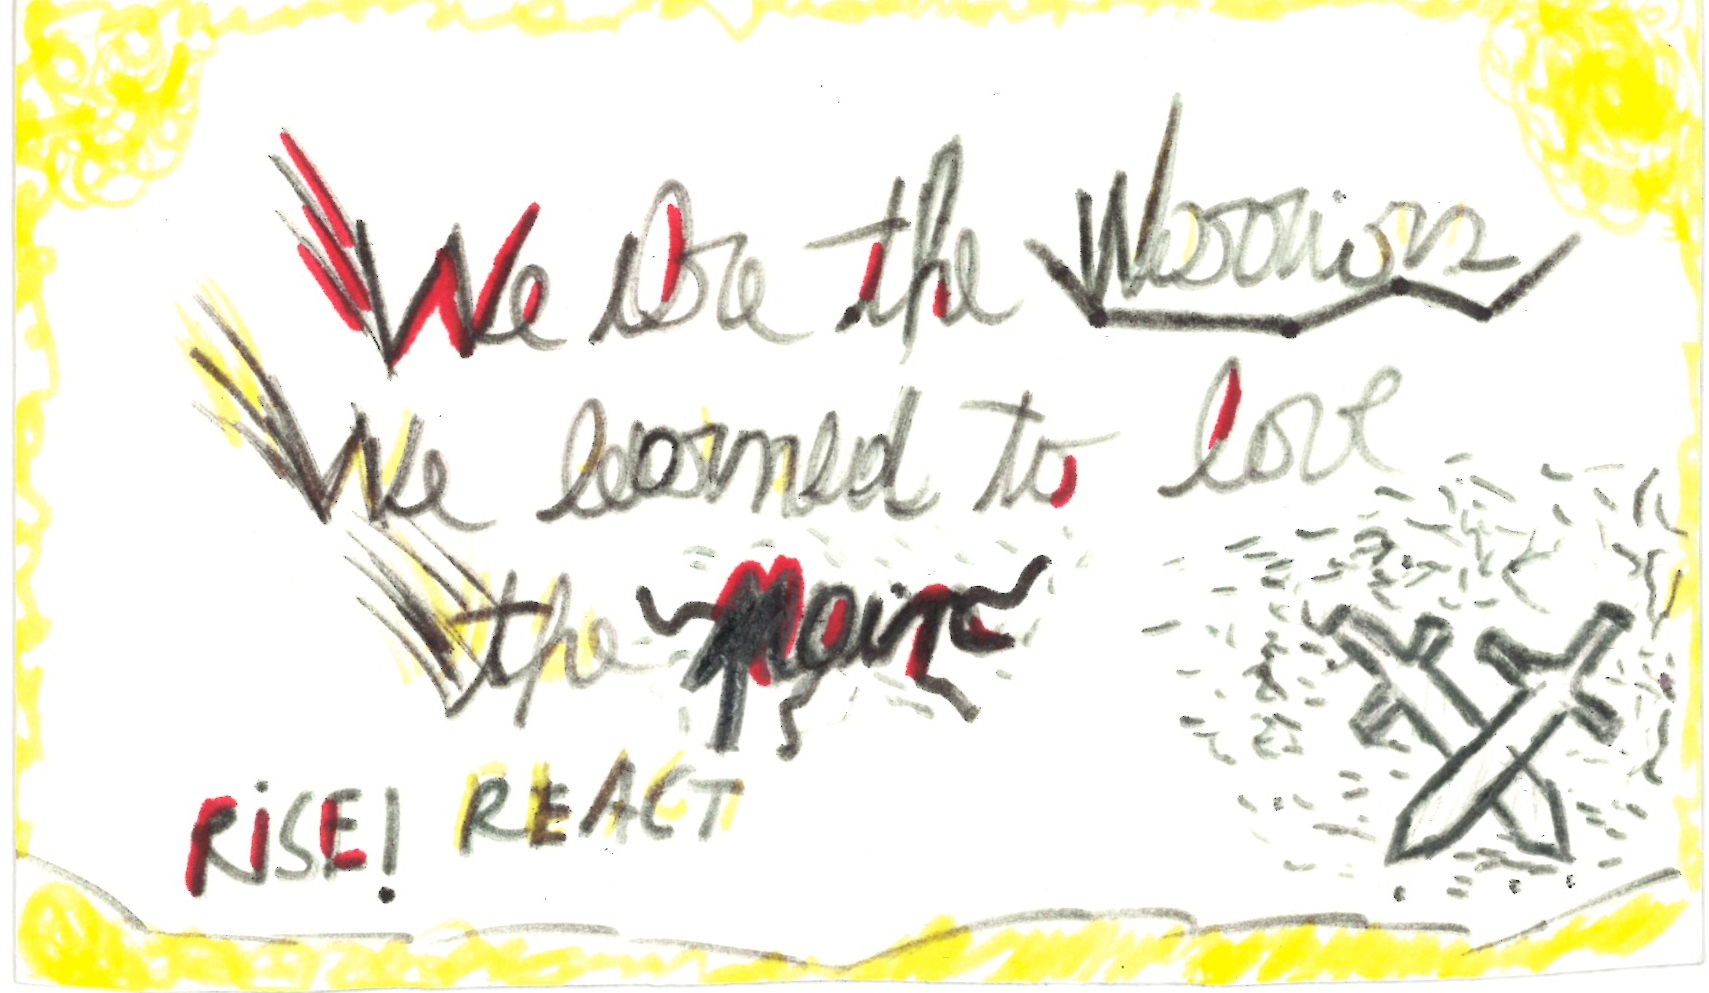 We are the Warriors
We learned to love
the Pain
RiSE! REACT